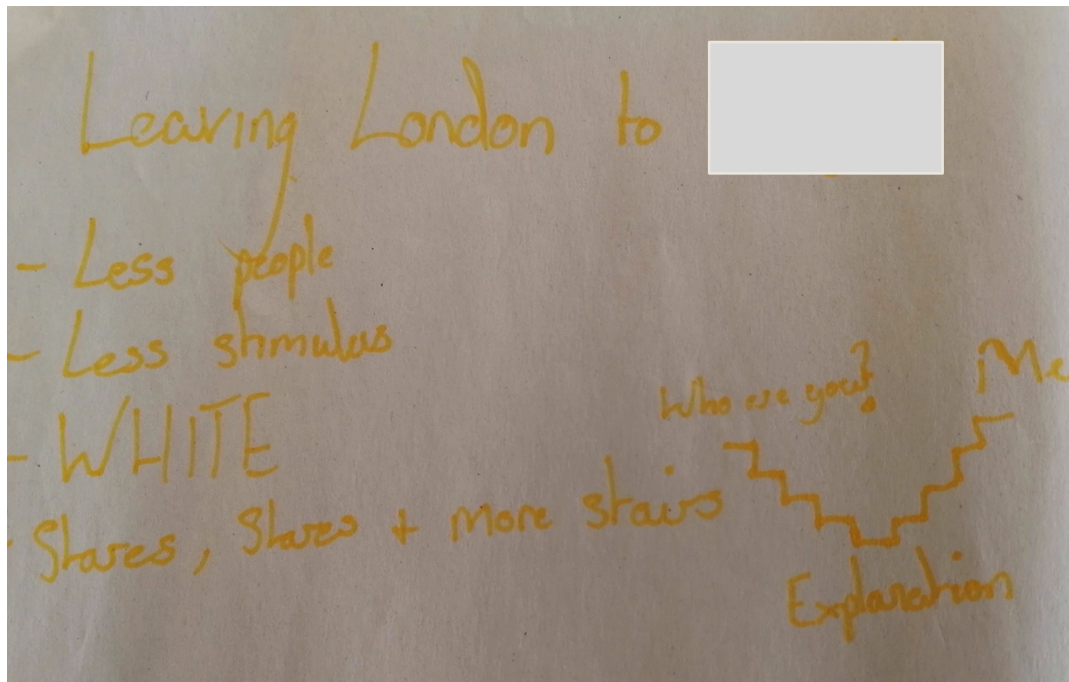 Leaving London to
- Less people
- Less stimulus
- WHITE
- Stares, Stares + more stairs
Who are you?
Me
Explanation